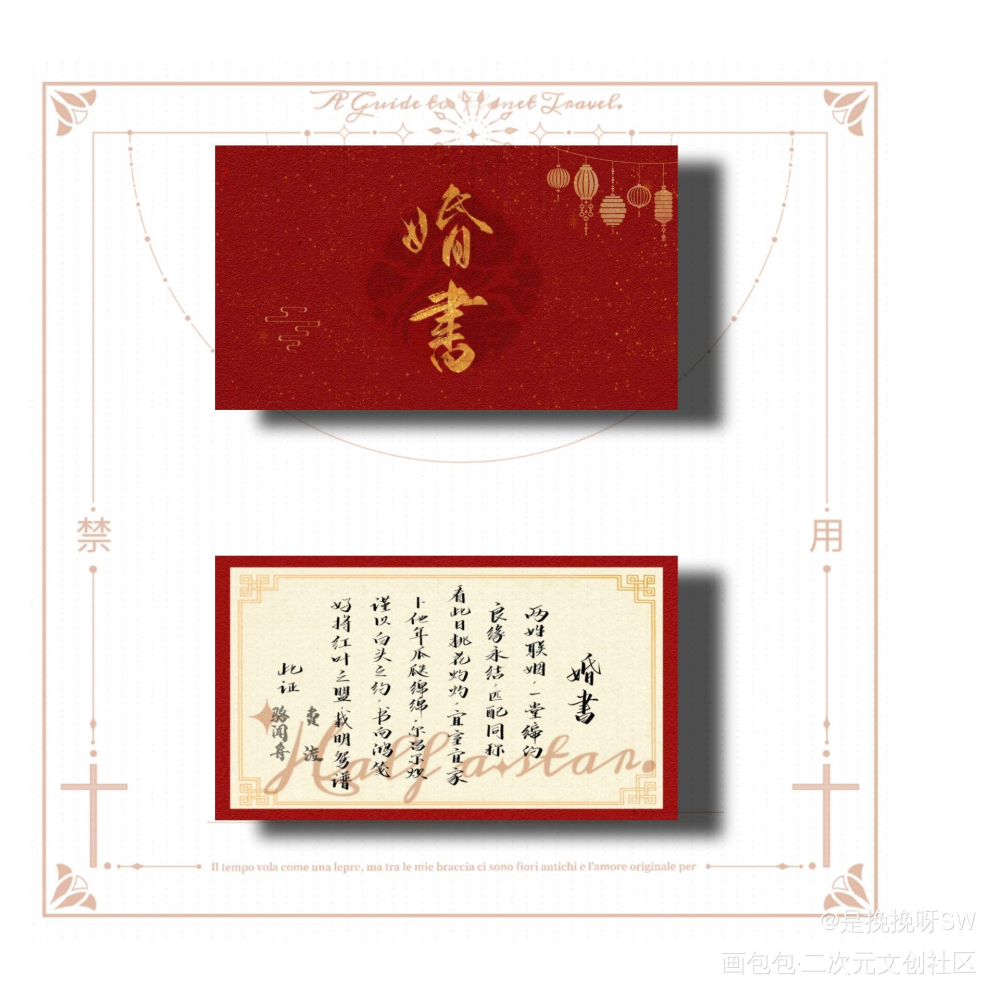 A Guide to Monet Travel.
婚
書
禁
用
婚書
两姓联姻，一堂缔约
良缘永结，匹配同称
看此日桃花灼灼，宜室宜家
卜他年瓜瓞绵绵，尔昌尔炽
谨以白头之约，书向鸿笺
好将红叶之盟，载明鸳谱
此证
费渡
骆闻舟
Half a star.
Il tempo vola come una lepre, ma tra le mie braccia ci sono fiori antichi e l'amore originale per
@是挽挽呀SW
画包包·二次元文创社区